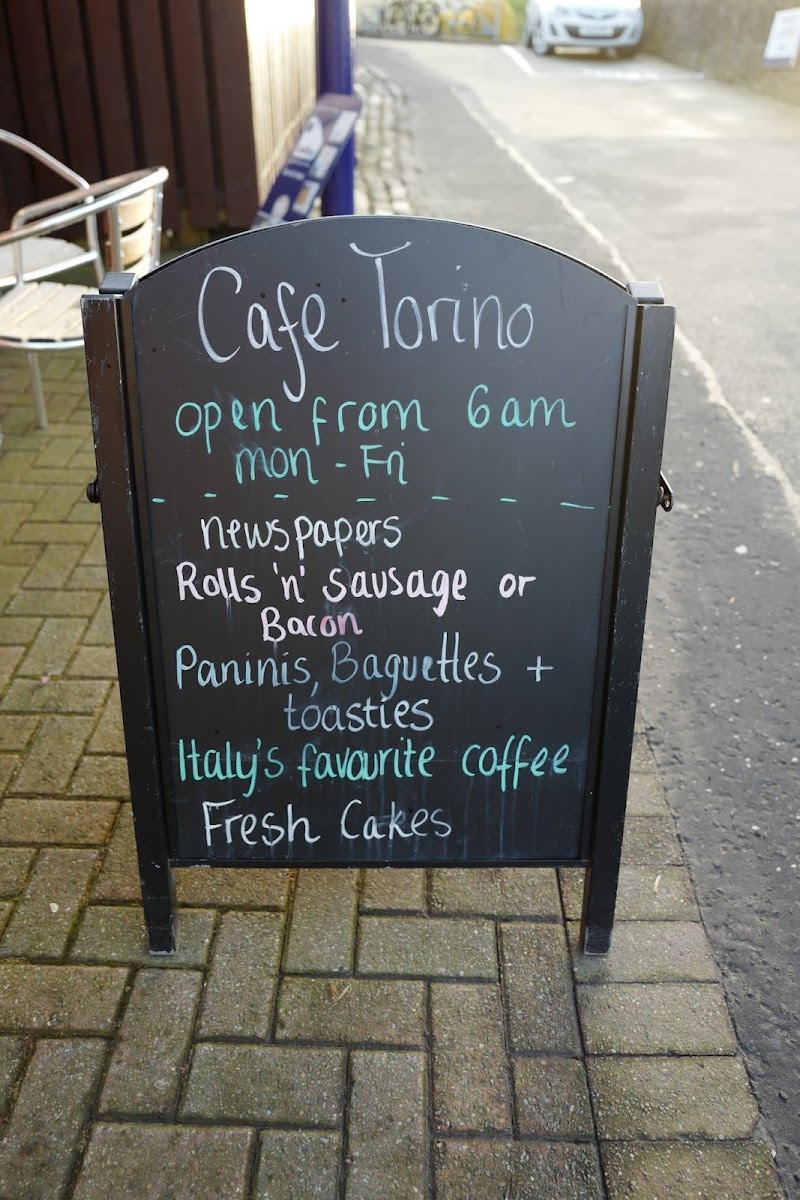 Cafe Torino
open from 6am
mon - Fri
newspapers
Rolls 'n' sausage or
Bacon
Paninis, Baguettes +
toasties
Italy's favourite coffee
Fresh Cakes